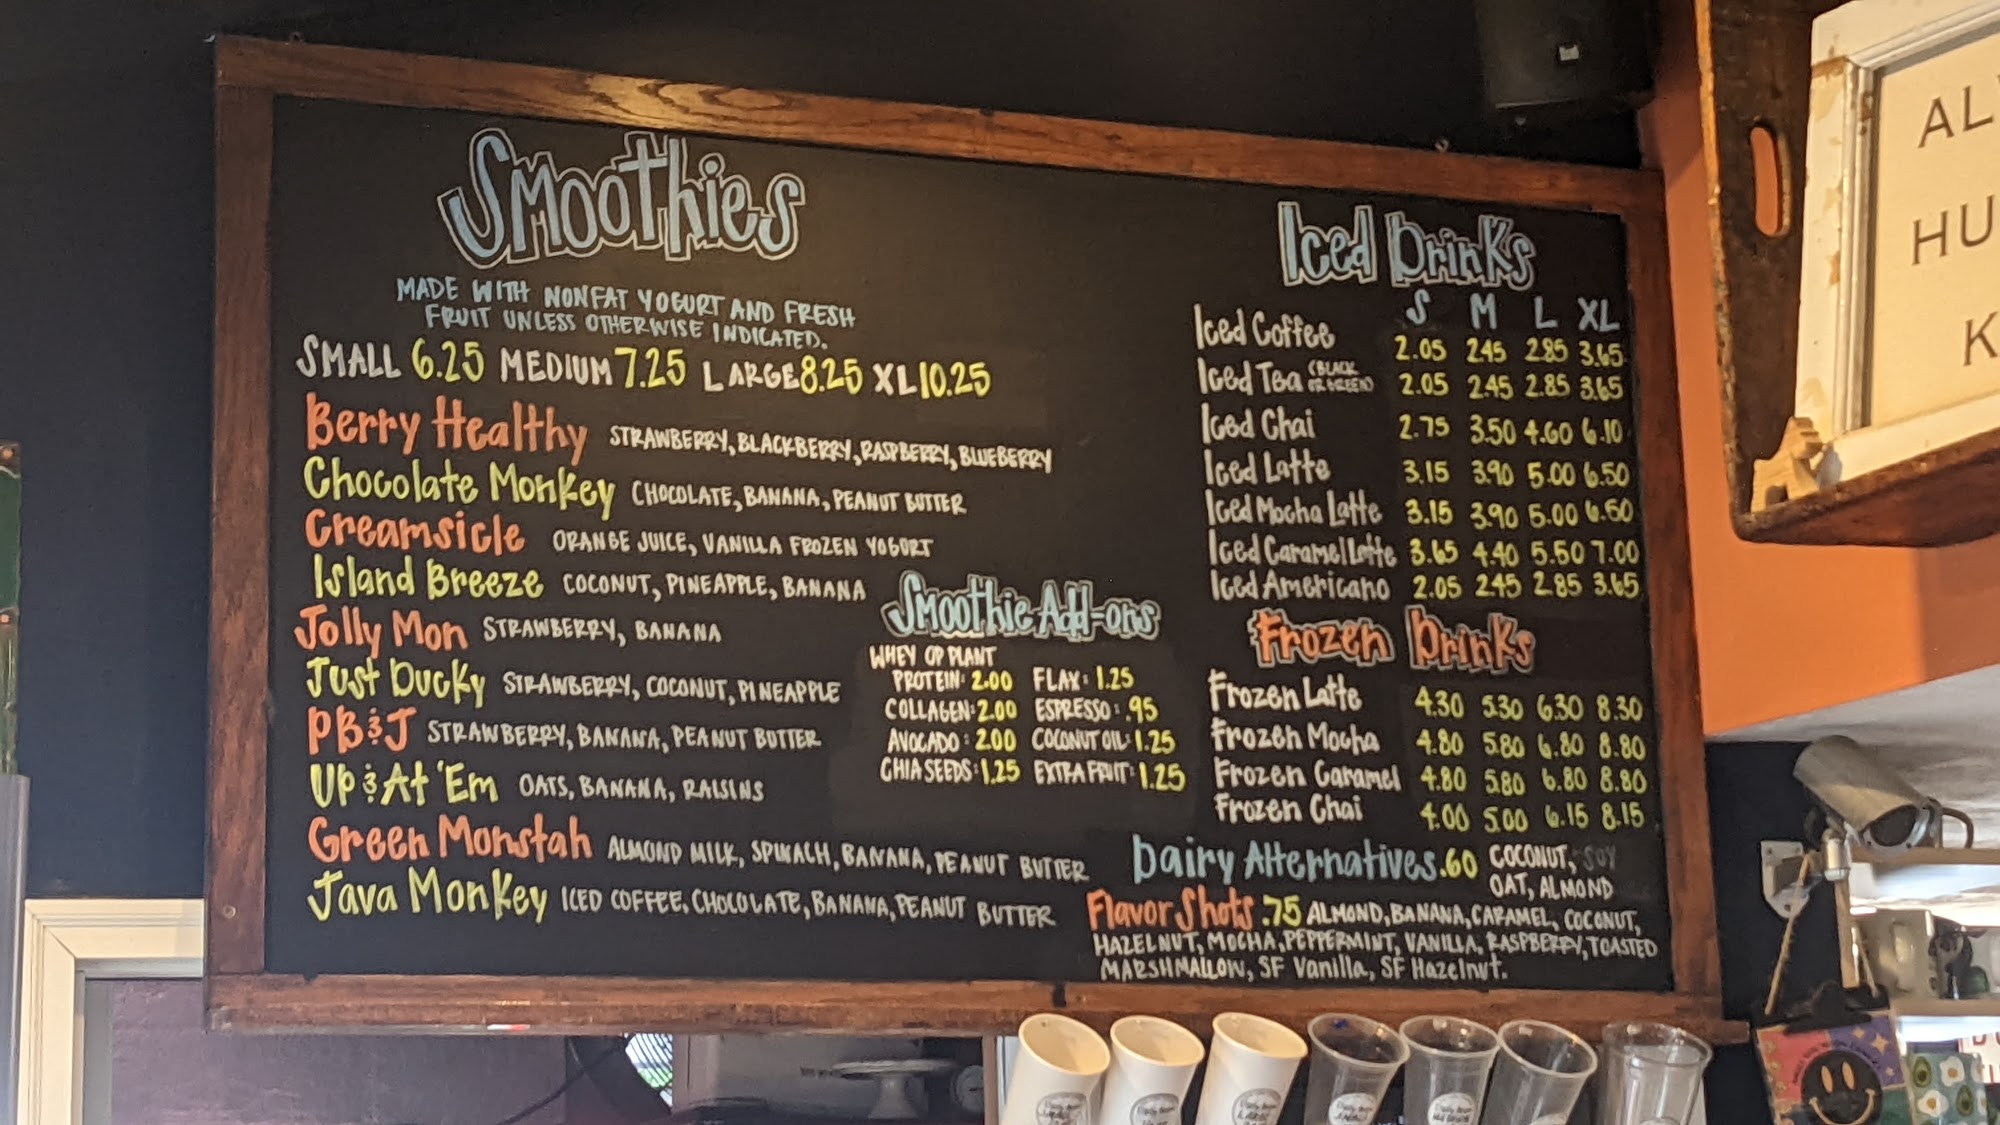 Smoothies
MADE WITH NONFAT YOGURT AND FRESH
FRUIT UNLESS OTHERWISE INDICATED.
SMALL 6.25 MEDIUM 7.25 LARGE 8.25 XL 10.25
Berry Healthy STRAWBERRY, BLACKBERRY, RASPBERRY, BLUEBERRY
Chocolate Monkey CHOCOLATE, BANANA, PEANUT BUTTER
Creamsicle ORANGE JUICE, VANILLA FROZEN YOGURT
Island Breeze COCONUT, PINEAPPLE, BANANA
Jolly Mon STRAWBERRY, BANANA
Just Ducky STRAWBERRY, COCONUT, PINEAPPLE
PB&J STRAWBERRY, BANANA, PEANUT BUTTER
Up & At 'Em OATS, BANANA, RAISINS
Green Monstah ALMOND MILK, SPINACH, BANANA, PEANUT BUTTER
Java Monkey ICED COFFEE, CHOCOLATE, BANANA, PEANUT BUTTER
Smoothie Add-ons
WHEY OR PLANT
PROTEIN: 2.00 FLAX: 1.25
COLLAGEN: 2.00 ESPRESSO: .95
AVOCADO: 2.00 COCONUT OIL: 1.25
CHIA SEEDS: 1.25 EXTRA FRUIT: 1.25
Iced Drinks
S M L XL
Iced Coffee 2.05 2.45 2.85 3.65
Iced Tea (BLACK OR GREEN) 2.05 2.45 2.85 3.65
Iced Chai 2.75 3.50 4.60 6.10
Iced Latte 3.15 3.90 5.00 6.50
Iced Mocha Latte 3.15 3.90 5.00 6.50
Iced Caramel Latte 3.65 4.40 5.50 7.00
Iced Americano 2.05 2.45 2.85 3.65
Frozen Drinks
Frozen Latte 4.30 5.30 6.30 8.30
Frozen Mocha 4.80 5.80 6.80 8.80
Frozen Caramel 4.80 5.80 6.80 8.80
Frozen Chai 4.00 5.00 6.15 8.15
Dairy Alternatives .60 COCONUT, SOY
OAT, ALMOND
Flavor Shots .75 ALMOND, BANANA, CARAMEL, COCONUT,
HAZELNUT, MOCHA, PEPPERMINT, VANILLA, RASPBERRY, TOASTED
MARSHMALLOW, SF Vanilla, SF Hazelnut.
AL
HU
K